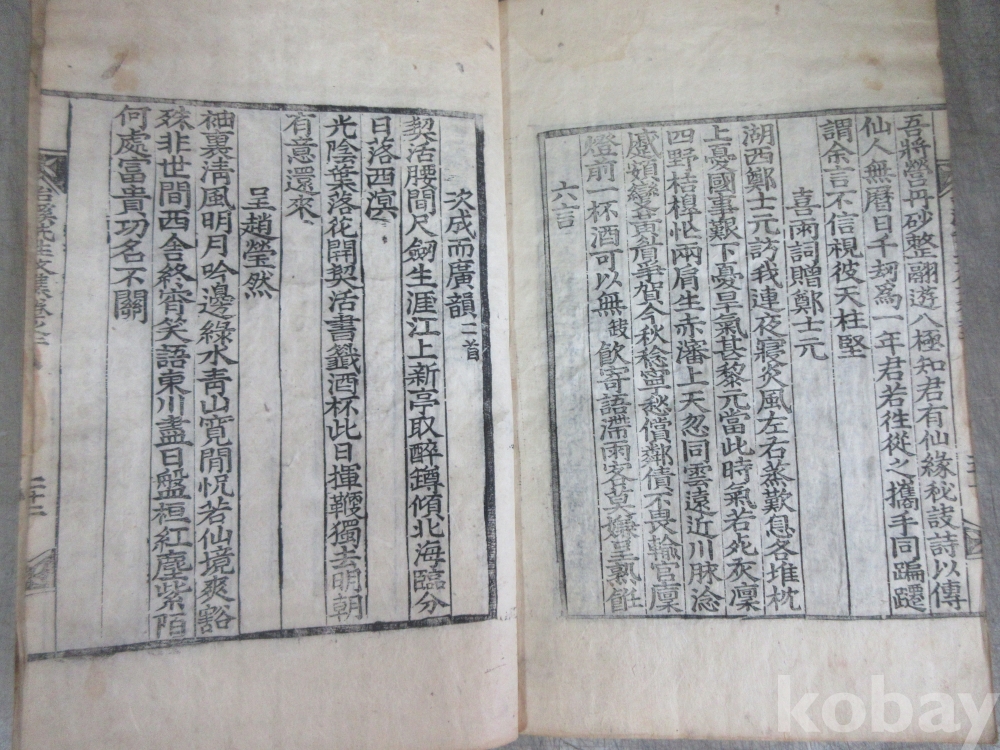 吾將營丹砂整翮遊八極知君有仙緣秘訣詩以傳
仙人無曆日千刼爲一年君若徃從之攜手同蹁躚
謂余言不信視彼天柱堅
喜雨詞贈鄭士元
湖西鄭士元訪我連夜寢炎風左右蒸歎息各堆枕
上憂國事艱下憂旱氣甚黎元當此時氣若死灰凜
四野梧檟忙兩肩生赤瀋上天忽同雲遠近川脉淰
今秋稔寧愁償鄰債不畏輸官廩
燈前一杯酒可以無豉飮寄語滯雨客莫嫌呈熟飪
六言
次成而廣韻二首
契活腰間尺劒生涯江上新亭取醉罇傾北海臨分
日落西溟
光陰葉落花開契活書籤酒杯此日揮鞭獨去明朝
有意還來
呈趙瑩然
袖裏淸風明月吟邊綠水靑山寬閒怳若仙境爽豁
殊非世間西舍終宵笑語東川盡日盤桓紅塵紫陌
何處富貴功名不關
二十二
kobay